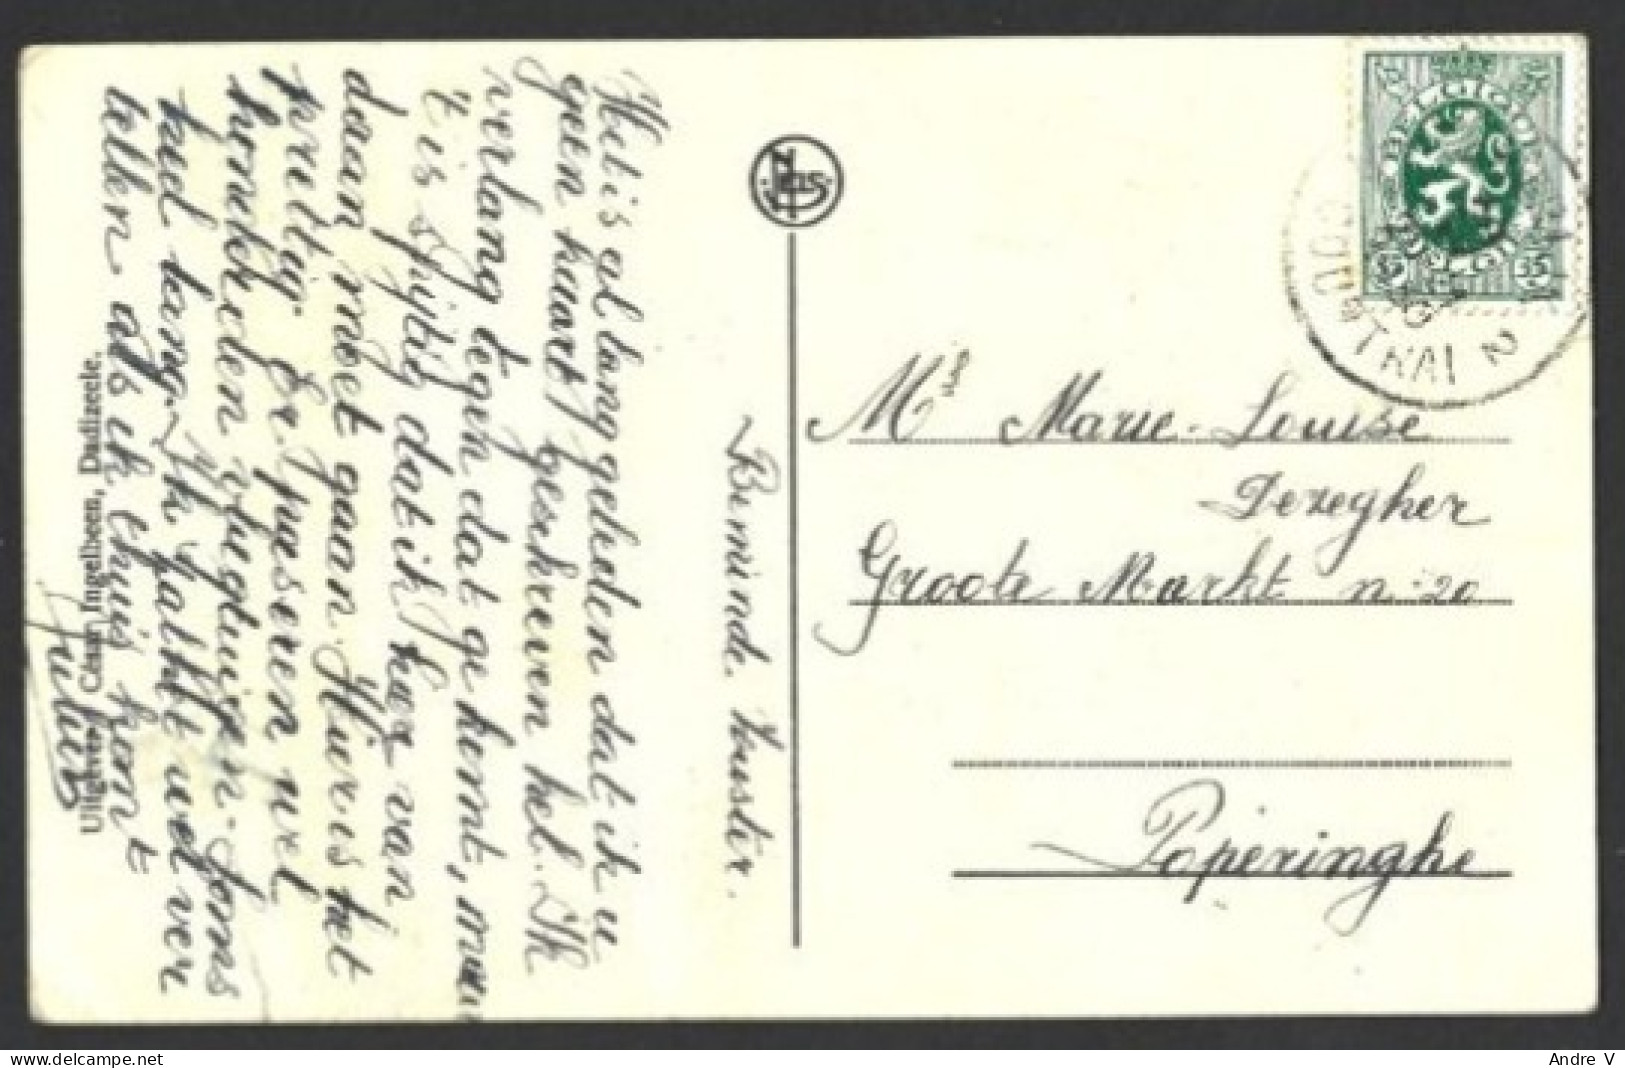 Beminde Zuster.
Het is al lang geleden dat ik u
geen kaart geschreven heb. Ik
verlang tegen dat ge komt, maar
't is spijtig dat ik hier van
daan moet gaan. Hier is het
prettig. Er passeren wel
honderden vliegtuigen. Soms
heel lang. Ik zal het wel ver
tellen als ik thuis kom
Uitgever: César Ingelbeen, Dadizeele.
Nels
BELGIQUE BELGIË
35 35
COURTRAI 2
Mlle Marie-Louise
Dezegher
Groote Markt n: 20
Poperinghe
delcampe.net
Andre V